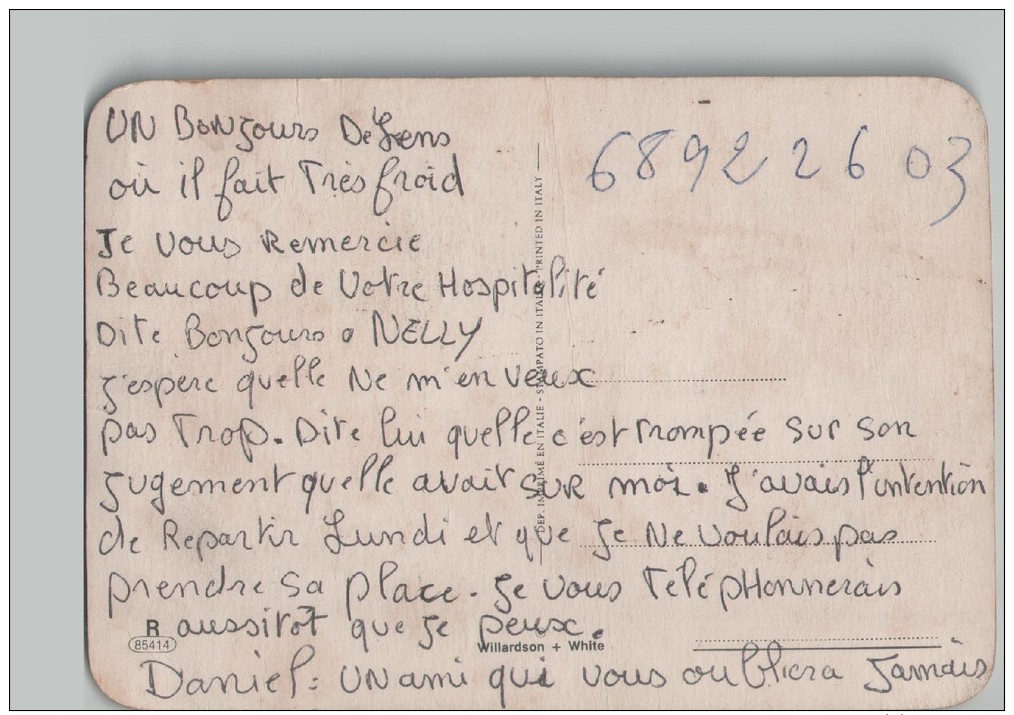 UN Bonjours De Lens
où il fait Très froid
6892 26 03
Je vous Remercie
Beaucoup de Votre Hospitalité
Dite Bonjours a NELLY
j'espère quelle Ne m'en veux
pas Trop. Dite lui quelle c'est trompée sur son
jugement quelle avait sur moi. J'avais l'intention
de Repartir Lundi et que je Ne voulais pas
prendre sa place. Je vous TeléPHonnerais
aussitot que je peux.
Daniel: UN ami qui vous oubliera Jamais
DEP. IMPRIMÉ EN ITALIE - STAMPATO IN ITALIA - PRINTED IN ITALY
R
85414
Willardson + White